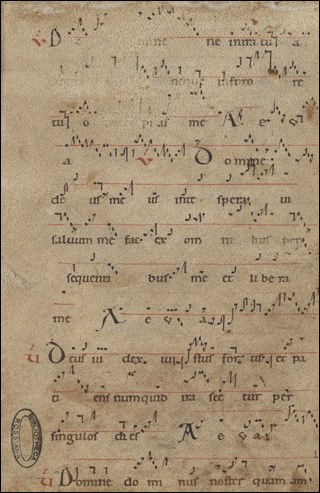 V D mine ne in ira tu a
neque in furo re
tu o pias me A e v a
a V Do mine
de us me us in te spera ui
saluum me fac ex om ni bus per
sequenti bus me et li be ra
me A e v a
V Deus iu dex iu stus for tis et pa
ti ens numquid ira sce tur per
singulos di es A e v a
V Domine do mi nus noster quam am